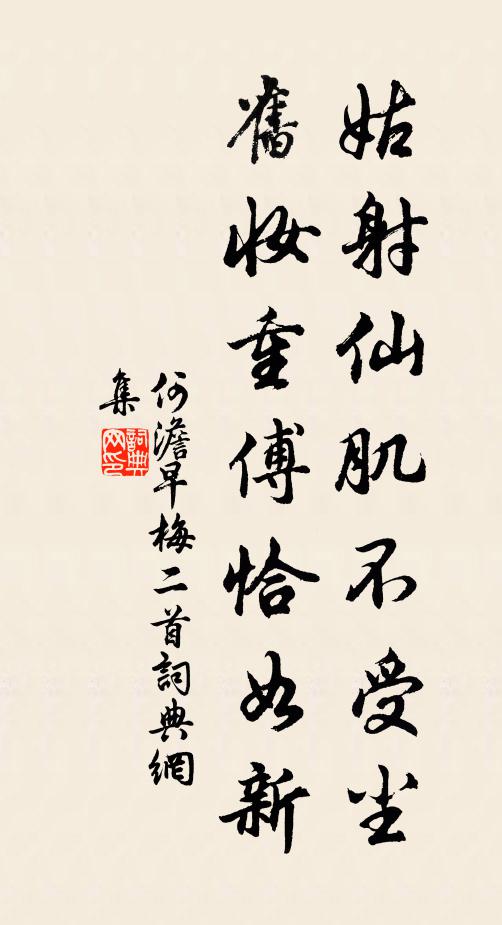 姑射仙肌不受尘
旧妆重傅恰如新
何澹早梅二首詞典網
集
詞典
网印